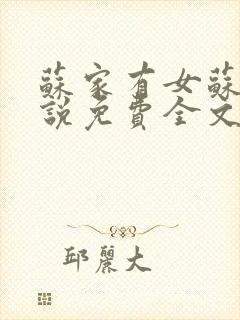 蘇家有女蘇
說免費全文
邱麗大